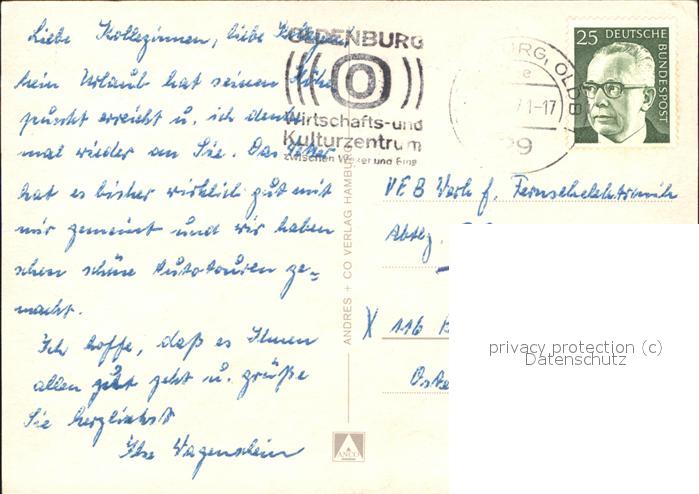 Liebe Kolleginnen, liebe Kollegen!
Mein Urlaub hat seinen Höhe-
punkt erreicht u. ich denke
mal wieder an Sie. Das Wetter
hat es bisher wirklich gut mit
mir gemeint und wir haben
schon schöne Autotouren ge-
macht.
Ich hoffe, daß es Ihnen
allen gut geht u. grüße
Sie herzlichst
Ilse Wagenstein
OLDENBURG
Wirtschafts-und
Kulturzentrum
zwischen Weser und Ems
BURG, OLDB
1-17
29
25 DEUTSCHE
BUNDESPOST
ANDRES + CO VERLAG HAMBURG
ANCO
VEB Werk f. Fernsehelektronik
Abtlg.
X 116 B
Oste
privacy protection (c)
Datenschutz